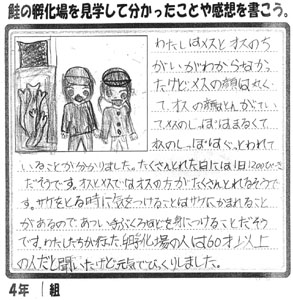 鮭の孵化場を見学して分かったことや感想を書こう。
わたしはメスとオスのち
がいがわからなかっ
たけど、メスの顔は丸く
て、オスの顔はとんがってい
て、メスのしっぽはまるくて
オスのしっぽは われて
いることが分かりました。たくさんとれた日には1日1200ひき
だそうです。オスとメスではオスの方がたくさんとれるそうで
す。サケをとる時に気をつけることはサケにかまれること
があるので、あつい手ぶくろなどを身につけることだそう
です。わたしたちがたずねた孵化場の人は60才以上
の人だと聞いたけど元気でびっくりしました。
4年 1組